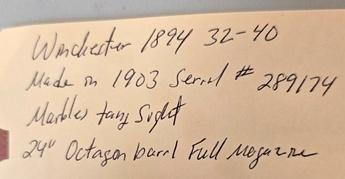 Winchester 1894 32-40
Made in 1903 Serial # 289174
Marbles tang Sight
24" Octagon barrel Full Magazine